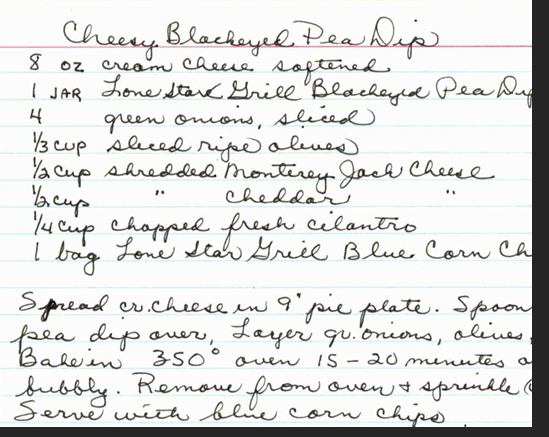 Cheesy Blackeyed Pea Dip
8 oz cream cheese softened
1 JAR Lone Star Grill Blackeyed Pea Dip
4 green onions, sliced
1/3 cup sliced ripe olives
1/2 cup shredded Monterey Jack Cheese
1/2 cup " cheddar "
1/4 cup chopped fresh cilantro
1 bag Lone Star Grill Blue Corn Ch
Spread cr. cheese in 9" pie plate. Spoon
pea dip over, Layer gr. onions, olives,
Bake in 350° oven 15-20 minutes o
bubbly. Remove from oven & sprinkle
Serve with blue corn chips.